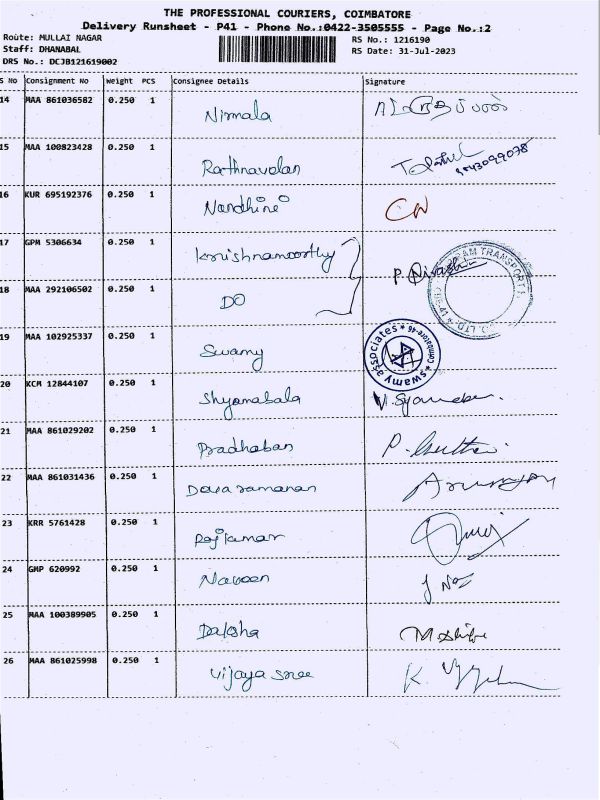 THE PROFESSIONAL COURIERS, COIMBATORE
Delivery Runsheet - P41 - Phone No.:0422-3505555 - Page No.:2
Route: MULLAI NAGAR
RS No.: 1216190
Staff: DHANABAL
RS Date: 31-Jul-2023
DRS No.: DCJB121619002
S No Consignment No Weight PCS Consignee Details Signature
14 MAA 861036582 0.250 1 Nirmala
15 MAA 100823428 0.250 1 Rathnavelan
16 KUR 695192376 0.250 1 Nandhini
17 GPM 5306634 0.250 1 Krishnamoorthy
18 MAA 292106502 0.250 1 DO
19 MAA 102925337 0.250 1 Swamy swamy associates * Coimbatore-46 *
20 KCM 12844107 0.250 1 Shyamabala
21 MAA 861029202 0.250 1 Pradhaban
22 MAA 861031436 0.250 1 Devaramanan
23 KRR 5761428 0.250 1 Rajkumar
24 GMP 620992 0.250 1 Naveen
25 MAA 100389905 0.250 1 Daksha
26 MAA 861025998 0.250 1 Vijaya Sree